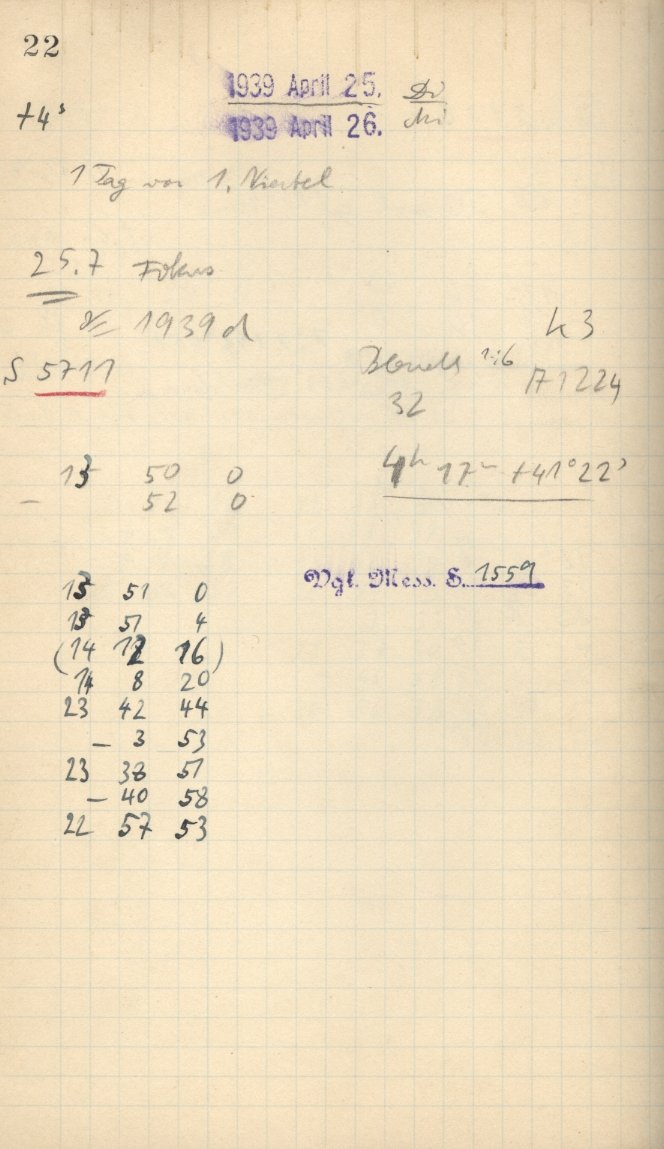 22
1939 April 25. Di
+4ˢ
1939 April 26. Mi
1 Tag vor 1. Viertel
25.7 Fokus
1939d
h3
S 5711
A1224
32
4ʰ 17ᵐ +41°22'
13 50 0
— 52 0
Vgl. Mess. S. 1559
13 51 0
13 51 4
(14 12 16)
14 8 20
23 42 44
— 3 53
23 38 51
— 40 58
22 57 53